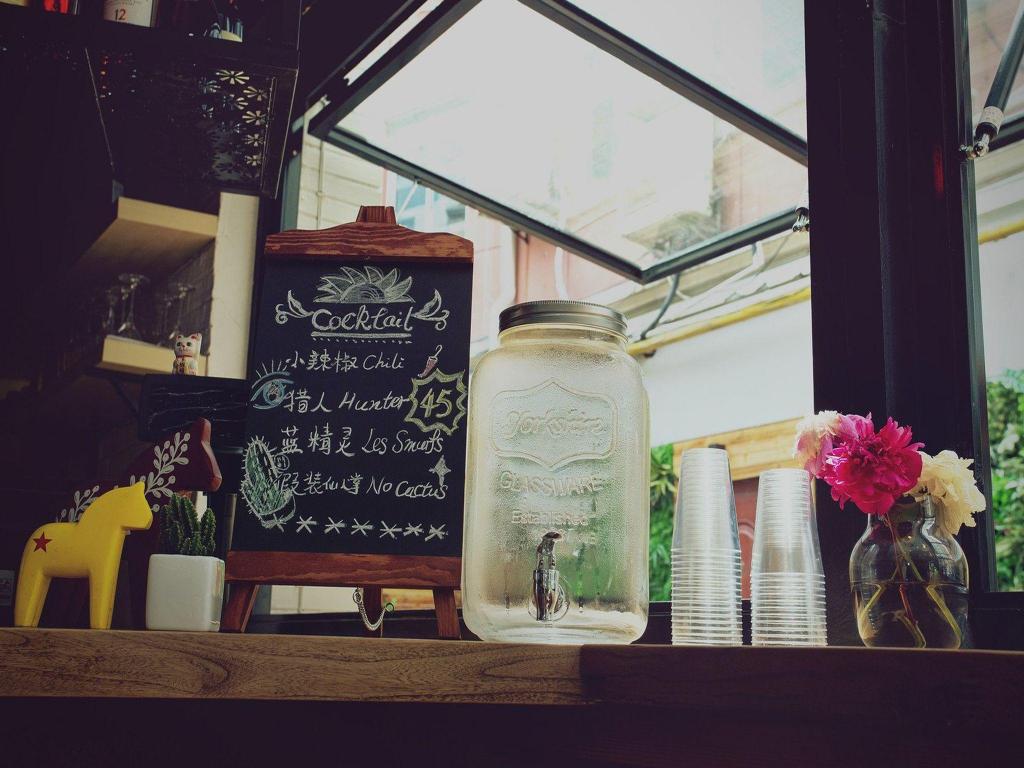 12
Cocktail
小辣椒 Chili
猎人 Hunter
45
蓝精灵 Les Smurfs
假装仙人掌 No Cactus
Yorkshire
GLASSWARE
Established